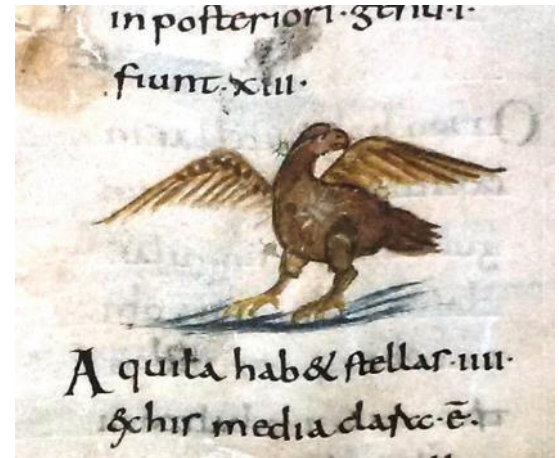 in posteriori·genu·i·
fiunt·xiii·
Aquila hab& stellas·iiii·
&his media